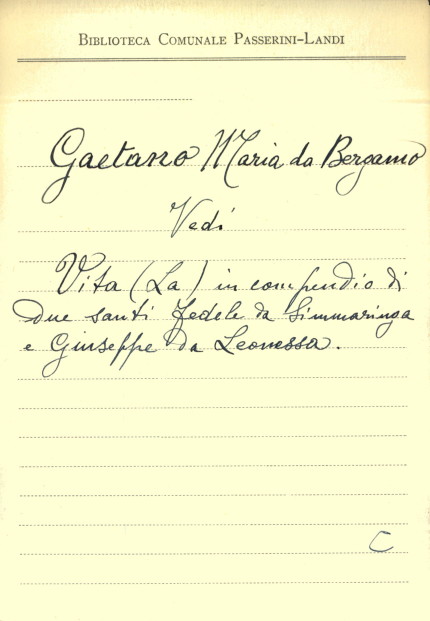 BIBLIOTECA COMUNALE PASSERINI-LANDI
Gaetano Maria da Bergamo
Vedi
Vita (La) in compendio di
due santi Fedele da Simmaringa
e Giuseppe da Leonessa.
C